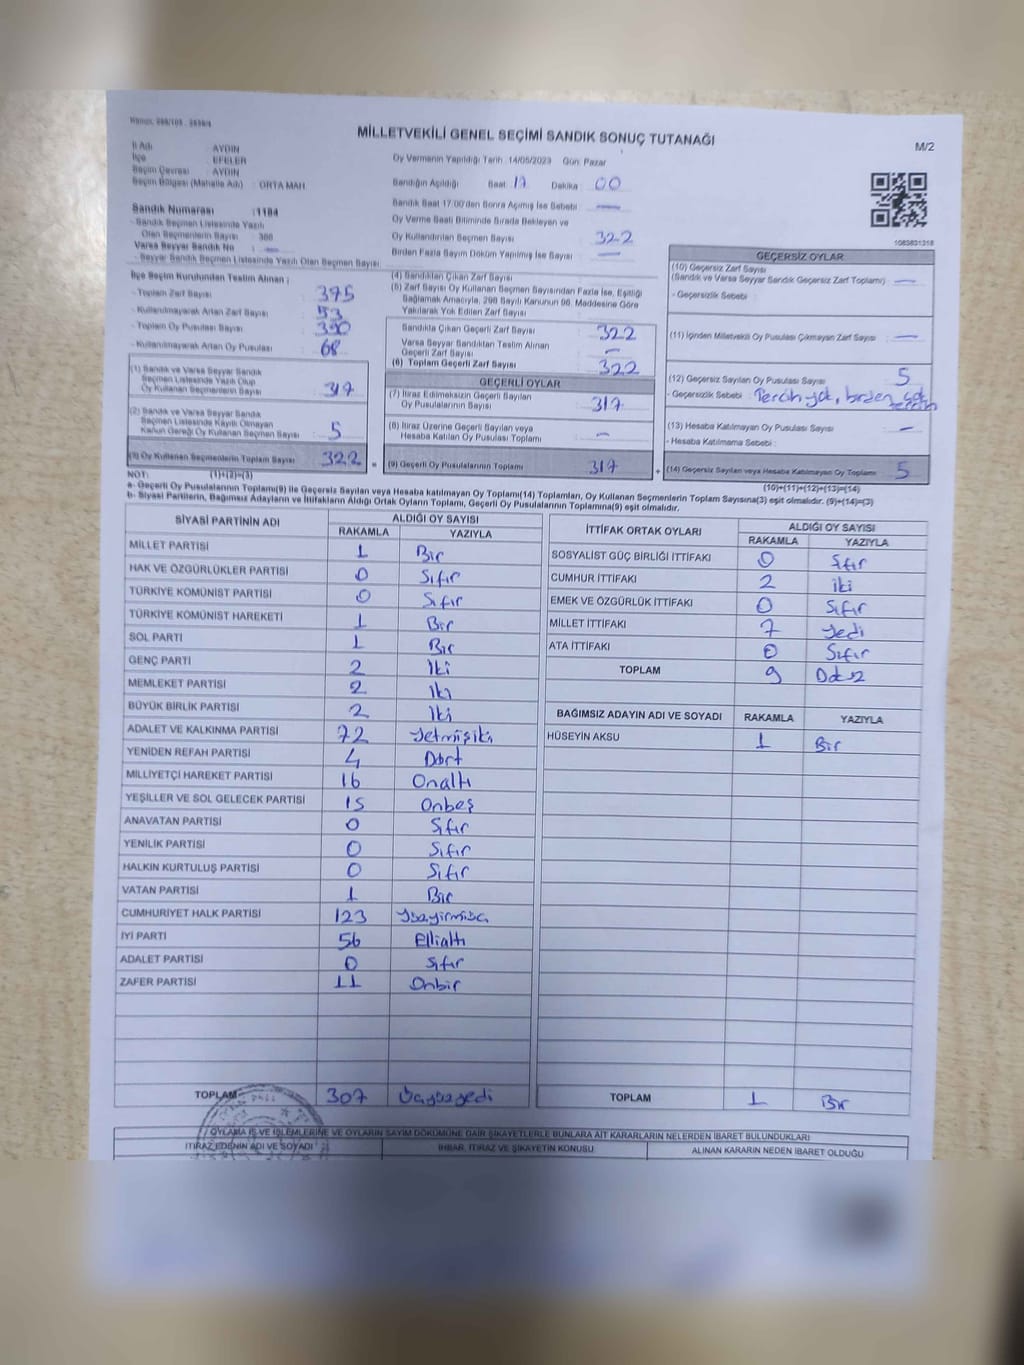 MİLLETVEKİLİ GENEL SEÇİMİ SANDIK SONUÇ TUTANAĞI
M/2
İl Adı AYDIN
İlçe EFELER
Seçim Çevresi AYDIN
Seçim Bölgesi (Mahalle Adı) : ORTA MAH.
Oy Vermenin Yapıldığı Tarih : 14/05/2023 Gün: Pazar
Sandığın Açıldığı Saat: 17 Dakika : 00
Sandık Saat 17:00'den Sonra Açılmış İse Sebebi : —
Sandık Numarası : 1184
- Sandık Seçmen Listesinde Yazılı
Olan Seçmenlerin Sayısı
Varsa Seyyar Sandık No : —
- Seyyar Sandık Seçmen Listesinde Yazılı Olan Seçmen Sayısı:
Oy Verme Saati Bitiminde Sırada Bekleyen ve
Oy Kullandırılan Seçmen Sayısı : 322
Birden Fazla Sayım Döküm Yapılmış İse Sayısı : —
1083831318
İlçe Seçim Kurulundan Teslim Alınan ;
- Toplam Zarf Sayısı : 395
- Kullanılmayarak Artan Zarf Sayısı : 53
- Toplam Oy Pusulası Sayısı : 390
- Kullanılmayarak Artan Oy Pusulası : 68
(1) Sandık ve Varsa Seyyar Sandık
Seçmen Listesinde Yazılı Olup
Oy Kullanan Seçmenlerin Sayısı : 317
(2) Sandık ve Varsa Seyyar Sandık
Seçmen Listesinde Kayıtlı Olmayan
Kanun Gereği Oy Kullanan Seçmen Sayısı : 5
(3) Oy Kullanan Seçmenlerin Toplam Sayısı : 322
(4) Sandıktan Çıkan Zarf Sayısı :
(5) Zarf Sayısı Oy Kullanan Seçmen Sayısından Fazla İse, Eşitliği
Bağlamak Amacıyla, 298 Sayılı Kanunun 98. Maddesine Göre
Yakılarak Yok Edilen Zarf Sayısı :
Sandıkta Çıkan Geçerli Zarf Sayısı : 322
Varsa Seyyar Sandıktan Teslim Alınan
Geçerli Zarf Sayısı : —
(6) Toplam Geçerli Zarf Sayısı : 322
GEÇERLİ OYLAR
(7) İtiraz Edilmeksizin Geçerli Sayılan
Oy Pusulalarının Sayısı : 317
(8) İtiraz Üzerine Geçerli Sayılan veya
Hesaba Katılan Oy Pusulası Toplamı : —
= (9) Geçerli Oy Pusulalarının Toplamı : 317
GEÇERSİZ OYLAR
(10) Geçersiz Zarf Sayısı
(Sandık ve Varsa Seyyar Sandık Geçersiz Zarf Toplamı) : —
- Geçersizlik Sebebi :
(11) İçinden Milletvekili Oy Pusulası Çıkmayan Zarf Sayısı : —
(12) Geçersiz Sayılan Oy Pusulası Sayısı : 5
- Geçersizlik Sebebi : Tercih yok, birden çok tercih
(13) Hesaba Katılmayan Oy Pusulası Sayısı : —
- Hesaba Katılmama Sebebi :
+ (14) Geçersiz Sayılan veya Hesaba Katılmayan Oy Toplamı : 5
NOT: (1)+(2)=(3) (10)+(11)+(12)+(13)=(14)
a- Geçerli Oy Pusulalarının Toplamı(9) ile Geçersiz Sayılan veya Hesaba katılmayan Oy Toplamı(14) Toplamları, Oy Kullanan Seçmenlerin Toplam Sayısına(3) eşit olmalıdır. (9)+(14)=(3)
b- Siyasi Partilerin, Bağımsız Adayların ve İttifakların Aldığı Ortak Oyların Toplamı, Geçerli Oy Pusulalarının Toplamına(9) eşit olmalıdır.
SİYASİ PARTİNİN ADI ALDIĞI OY SAYISI
RAKAMLA YAZIYLA
MİLLET PARTİSİ 1 Bir
HAK VE ÖZGÜRLÜKLER PARTİSİ 0 Sıfır
TÜRKİYE KOMÜNİST PARTİSİ 0 Sıfır
TÜRKİYE KOMÜNİST HAREKETİ 1 Bir
SOL PARTİ 1 Bir
GENÇ PARTİ 2 İki
MEMLEKET PARTİSİ 2 İki
BÜYÜK BİRLİK PARTİSİ 2 İki
ADALET VE KALKINMA PARTİSİ 72 Yetmişiki
YENİDEN REFAH PARTİSİ 4 Dört
MİLLİYETÇİ HAREKET PARTİSİ 16 Onaltı
YEŞİLLER VE SOL GELECEK PARTİSİ 15 Onbeş
ANAVATAN PARTİSİ 0 Sıfır
YENİLİK PARTİSİ 0 Sıfır
HALKIN KURTULUŞ PARTİSİ 0 Sıfır
VATAN PARTİSİ 1 Bir
CUMHURİYET HALK PARTİSİ 123 Yüzyirmiüç
İYİ PARTİ 56 Ellialtı
ADALET PARTİSİ 0 Sıfır
ZAFER PARTİSİ 11 Onbir
TOPLAM 307 Üçyüzyedi
İTTİFAK ORTAK OYLARI ALDIĞI OY SAYISI
RAKAMLA YAZIYLA
SOSYALİST GÜÇ BİRLİĞİ İTTİFAKI 0 Sıfır
CUMHUR İTTİFAKI 2 iki
EMEK VE ÖZGÜRLÜK İTTİFAKI 0 Sıfır
MİLLET İTTİFAKI 7 Yedi
ATA İTTİFAKI 0 Sıfır
TOPLAM 9 Dokuz
BAĞIMSIZ ADAYIN ADI VE SOYADI RAKAMLA YAZIYLA
HÜSEYİN AKSU 1 Bir
TOPLAM 1 Bir
OYLAMA İŞ VE İŞLEMLERİNE VE OYLARIN SAYIM DÖKÜMÜNE DAİR ŞİKAYETLERLE BUNLARA AİT KARARLARIN NELERDEN İBARET BULUNDUKLARI
İTİRAZ EDENİN ADI VE SOYADI İHBAR, İTİRAZ VE ŞİKAYETİN KONUSU ALINAN KARARIN NEDEN İBARET OLDUĞU